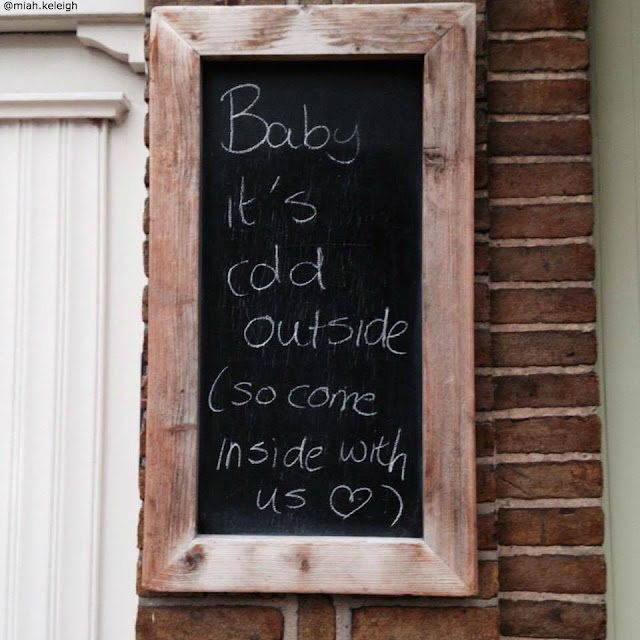 @miah.keleigh
Baby
it's
cold
outside
(so come
inside with
us ♡)